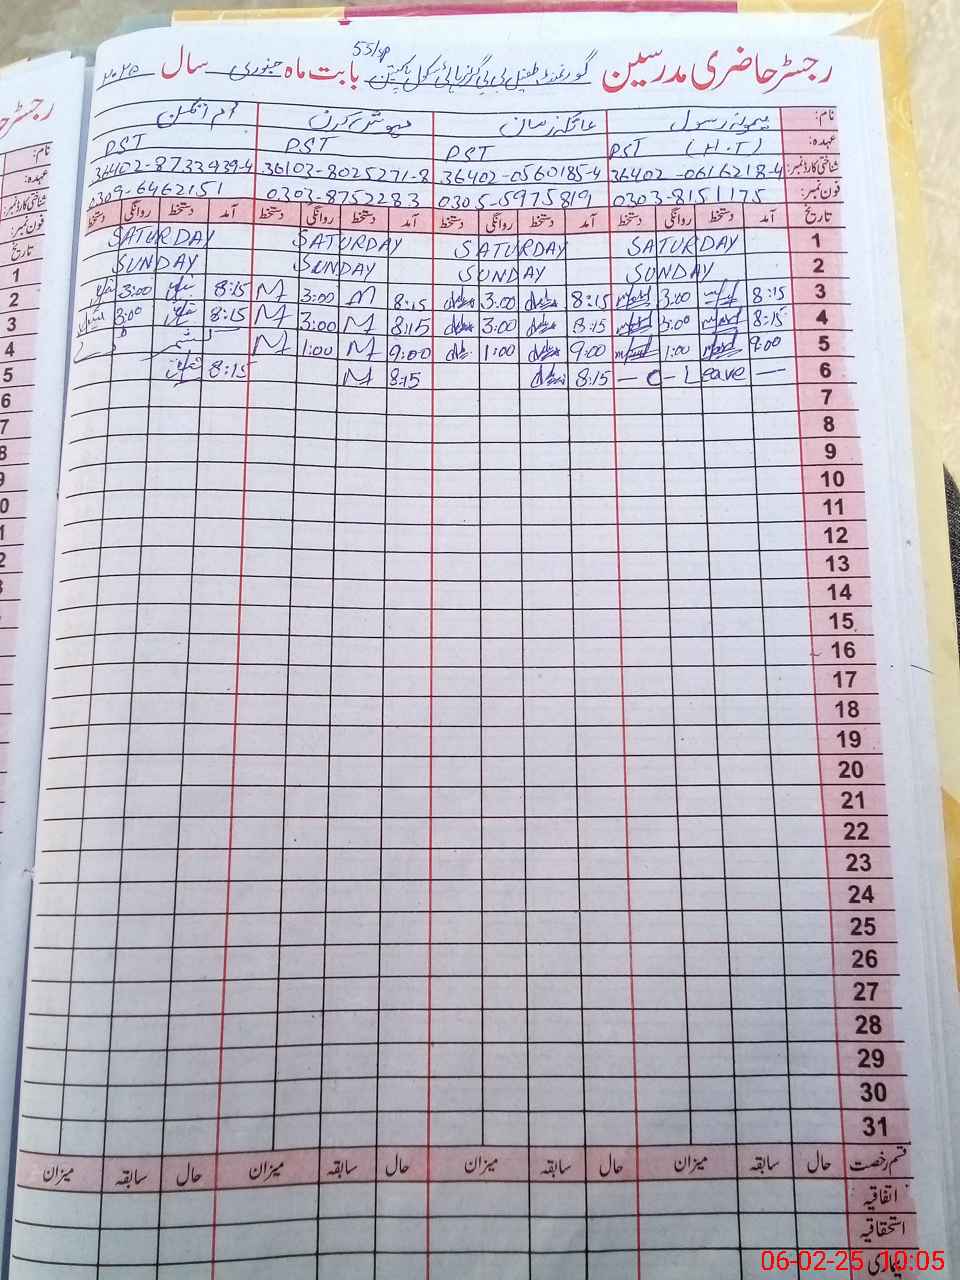 رجسٹر حاضری مدرسین گورنمنٹ طفیل بی بی گرلز ہائی سکول پاکپتن 55/SP بابت ماہ جنوری سال ۲۰۲۵
نام: میمونہ رسول
عہدہ: PST (H.T) PST PST PST
شناختی کارڈ نمبر: 36402-0616218-4 36402-0560185-4 36102-8025271-8 36402-8733939-4
فون نمبر: 0303-8151175 0305-5975819 0303-8752283 0309-6462151
تاریخ آمد دستخط روانگی دستخط آمد دستخط روانگی دستخط آمد دستخط روانگی دستخط آمد دستخط روانگی دستخط
1 SATURDAY SATURDAY SATURDAY SATURDAY
2 SUNDAY SUNDAY SUNDAY SUNDAY
3 8:15 3:00 8:15 3:00 8:15 M 3:00 M 8:15 3:00
4 8:15 3:00 8:15 3:00 8:15 M 3:00 M 8:15 3:00
5 9:00 1:00 9:00 1:00 9:00 M 1:00 M
6 — C - Leave — 8:15 8:15 M 8:15
7
8
9
10
11
12
13
14
15
16
17
18
19
20
21
22
23
24
25
26
27
28
29
30
31
قسم رخصت حال سابقہ میزان حال سابقہ میزان حال سابقہ میزان حال سابقہ میزان
اتفاقیہ
استحقاقیہ
بیماری
06-02-25 10:05
رجسٹر
نام:
عہدہ:
شناختی کارڈ نمبر:
فون نمبر:
تاریخ
1
2
3
4
5
6
7